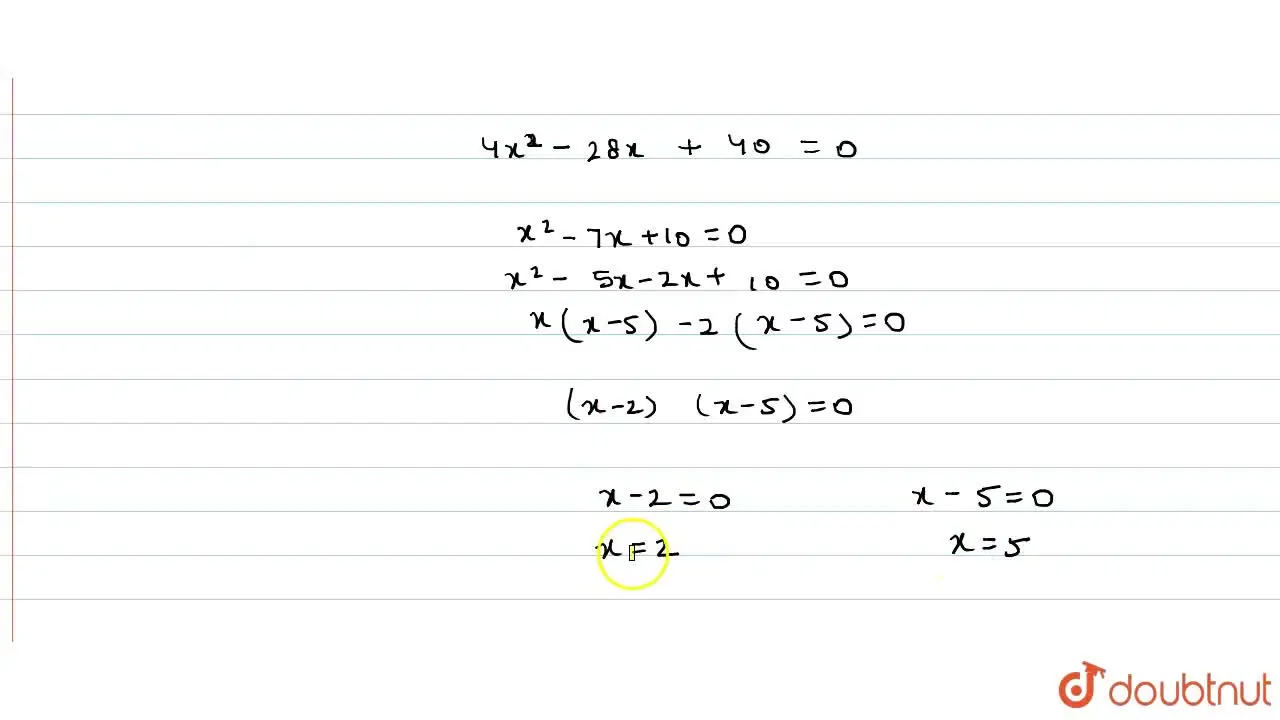 4x² - 28x + 40 = 0
x² - 7x + 10 = 0
x² - 5x - 2x + 10 = 0
x (x - 5) - 2 (x - 5) = 0
(x - 2) (x - 5) = 0
x - 2 = 0 x - 5 = 0
x = 2 x = 5
doubtnut